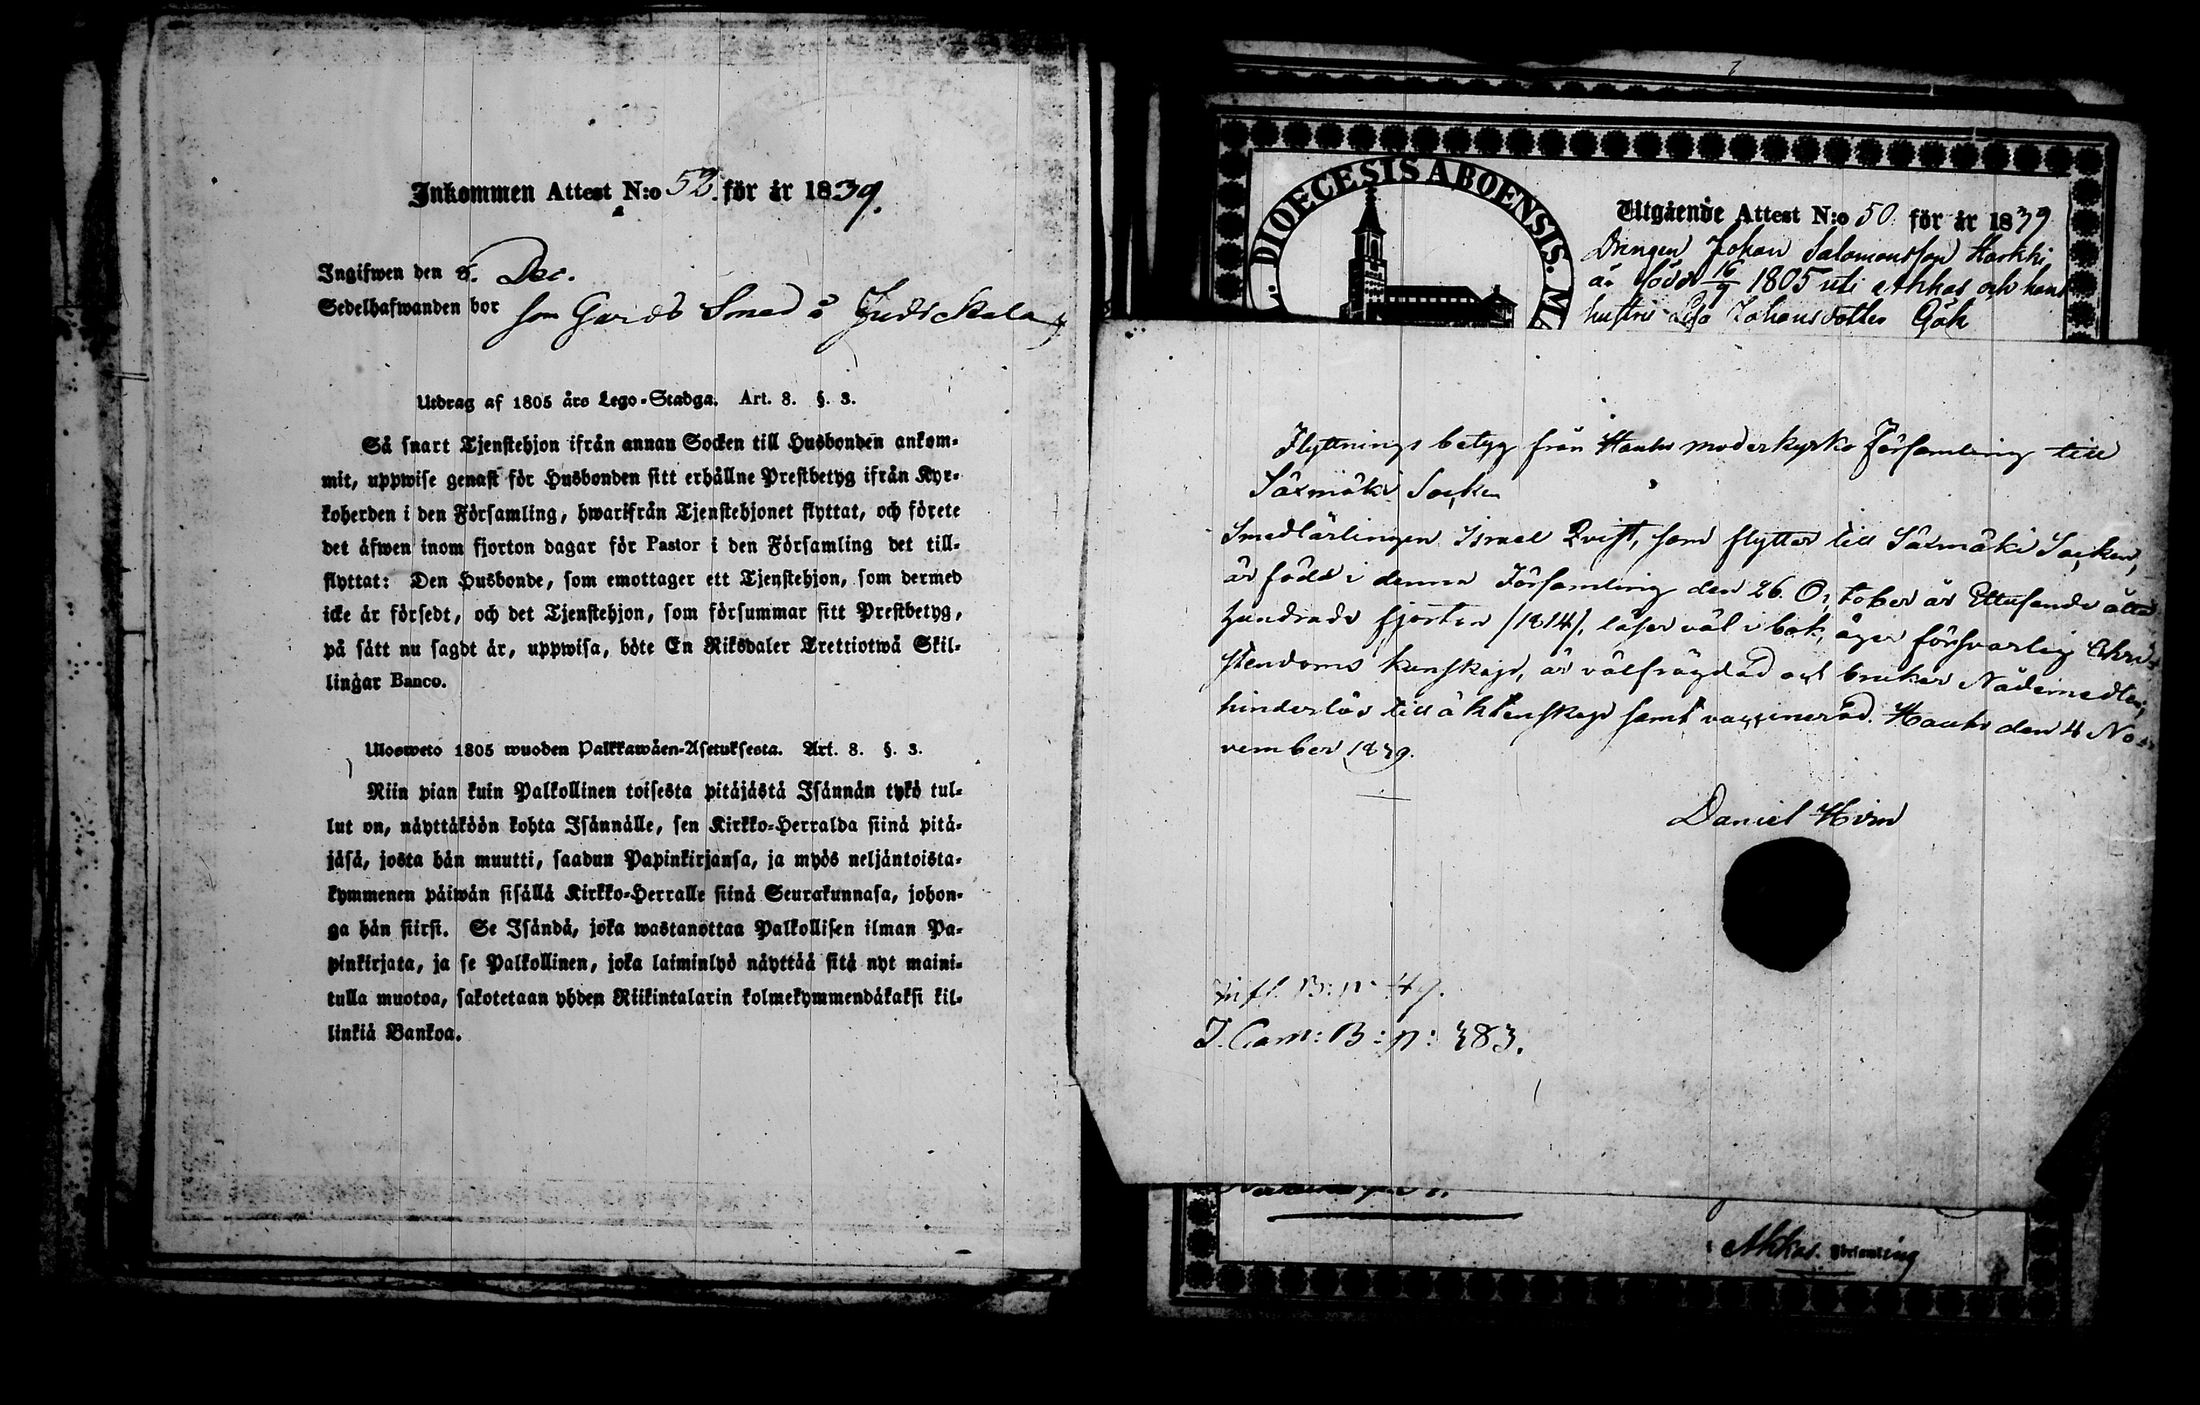 Inkommen Attest N:o 52. för år 1839.
Ingifwen den 8. Dec.
Sedelhafwanden bor som Gårds Smed å Judickala
Utdrag af 1805 års Lego-Stadga. Art. 8. §. 3.
Så snart Tjenstehjon ifrån annan Socken till Husbonden ankom-
mit, uppwise genast för Husbonden sitt erhållne Prestbetyg ifrån Kyr-
koherden i den Församling, hwarifrån Tjenstehjonet flyttat, och förete
det äfwen inom fjorton dagar för Pastor i den Församling det till-
flyttat: Den Husbonde, som emottager ett Tjenstehjon, som dermed
icke är försedt, och det Tjenstehjon, som försummar sitt Prestbetyg,
på sätt nu sagdt är, uppwisa, böte En Riksdaler Trettiotwå Skil-
lingar Banco.
Ulosweto 1805 wuoden Palkkawäen-Asetuksesta. Art. 8. §. 3.
Niin pian kuin Palkollinen toisesta pitäjästä Isännän tykö tul-
lut on, näyttäköön kohta Isännälle, sen Kirkko-Herralda siinä pitä-
jäsä, josta hän muutti, saadun Papinkirjansa, ja myös neljäntoista-
kymmenen päiwän sisällä Kirkko-Herralle siinä Seurakunnasa, johon-
ga hän siirsi. Se Isändä, joka wastanottaa Palkollisen ilman Pa-
pinkirjata, ja se Palkollinen, joka laiminlyö näyttää sitä nyt maini-
tulla muotoa, sakotetaan yhden Riikintalarin kolmekymmendäkaksi kil-
linkiä Bankoa.
DIOECESIS ABOENSIS. MA
Utgående Attest N:o 50. för år 1839
Drängen Johan Salomonsson Harkki
är född 16/9 1805 uti Akkas och hans
hustru Lisa Johansdotter Gök
Flyttnings betyg från Hauho moderkyrko Församling till
Säxmäki Socken
Smedlärlingen Israel Qvist, som flyttar till Säxmäki Socken,
är född i denna Församling den 26 October år Ettusende åtta
hundrade fjorton /1814/, läser väl i bok, äger försvarlig Chri-
stendoms kunskap, är välfrägdad och brukar Nådemedlen,
hinderlös till äktenskap samt vaccinerad. Hauho den 4 No-
vember 1839.
Daniel Hirn
Infl. B: p: 49.
I. Com: B: p: 383.
Akkas Församling